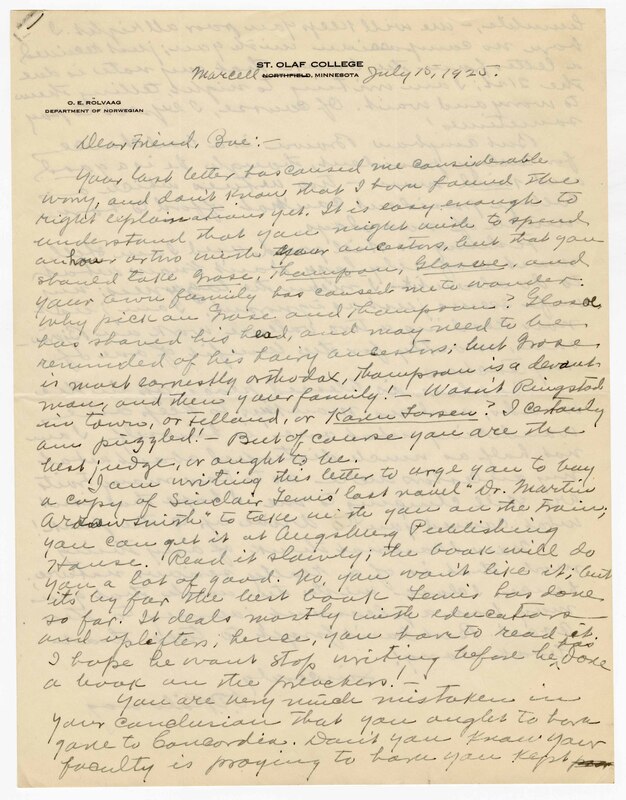 ST. OLAF COLLEGE
Marcell NORTHFIELD, MINNESOTA July 18, 1925.
O. E. RÖLVAAG
DEPARTMENT OF NORWEGIAN
Dear Friend, Boe:-
Your last letter has caused me considerable
worry, and don't know that I have found the
right explanations yet. It is easy enough to
understand that you might wish to spend
an hour or two with your ancestors, but that you
should take Grose, Thompson, Glasoe, and
your own family has caused me to wonder.
Why pick on Grose and Thompson? Glasoe
has shaved his head, and may need to be
reminded of his hairy ancestors; but Grose
is most earnestly orthodox, Thompson is a devout
man, and then your family! - Wasn't Ringstad
in town, or Felland, or Karen Larsen? I certainly
am puzzled! - But of course you are the
best judge, or ought to be.
I am writing this letter to urge you to buy
a copy of Sinclair Lewis' last novel "Dr. Martin
Arrowsmith" to take with you on the train;
you can get it at Augsburg Publishing
House. Read it slowly; the book will do
you a lot of good. No, you won't like it; but
it's by far the best book Lewis has done
so far. It deals mostly with educators
and uplifters; hence, you have to read it.
I hope he wont stop writing before he has done
a book on the preachers! -
You are very much mistaken in
your conclusion that you ought to have
gone to Concordia. Don't you know your
faculty is praying to have you kept